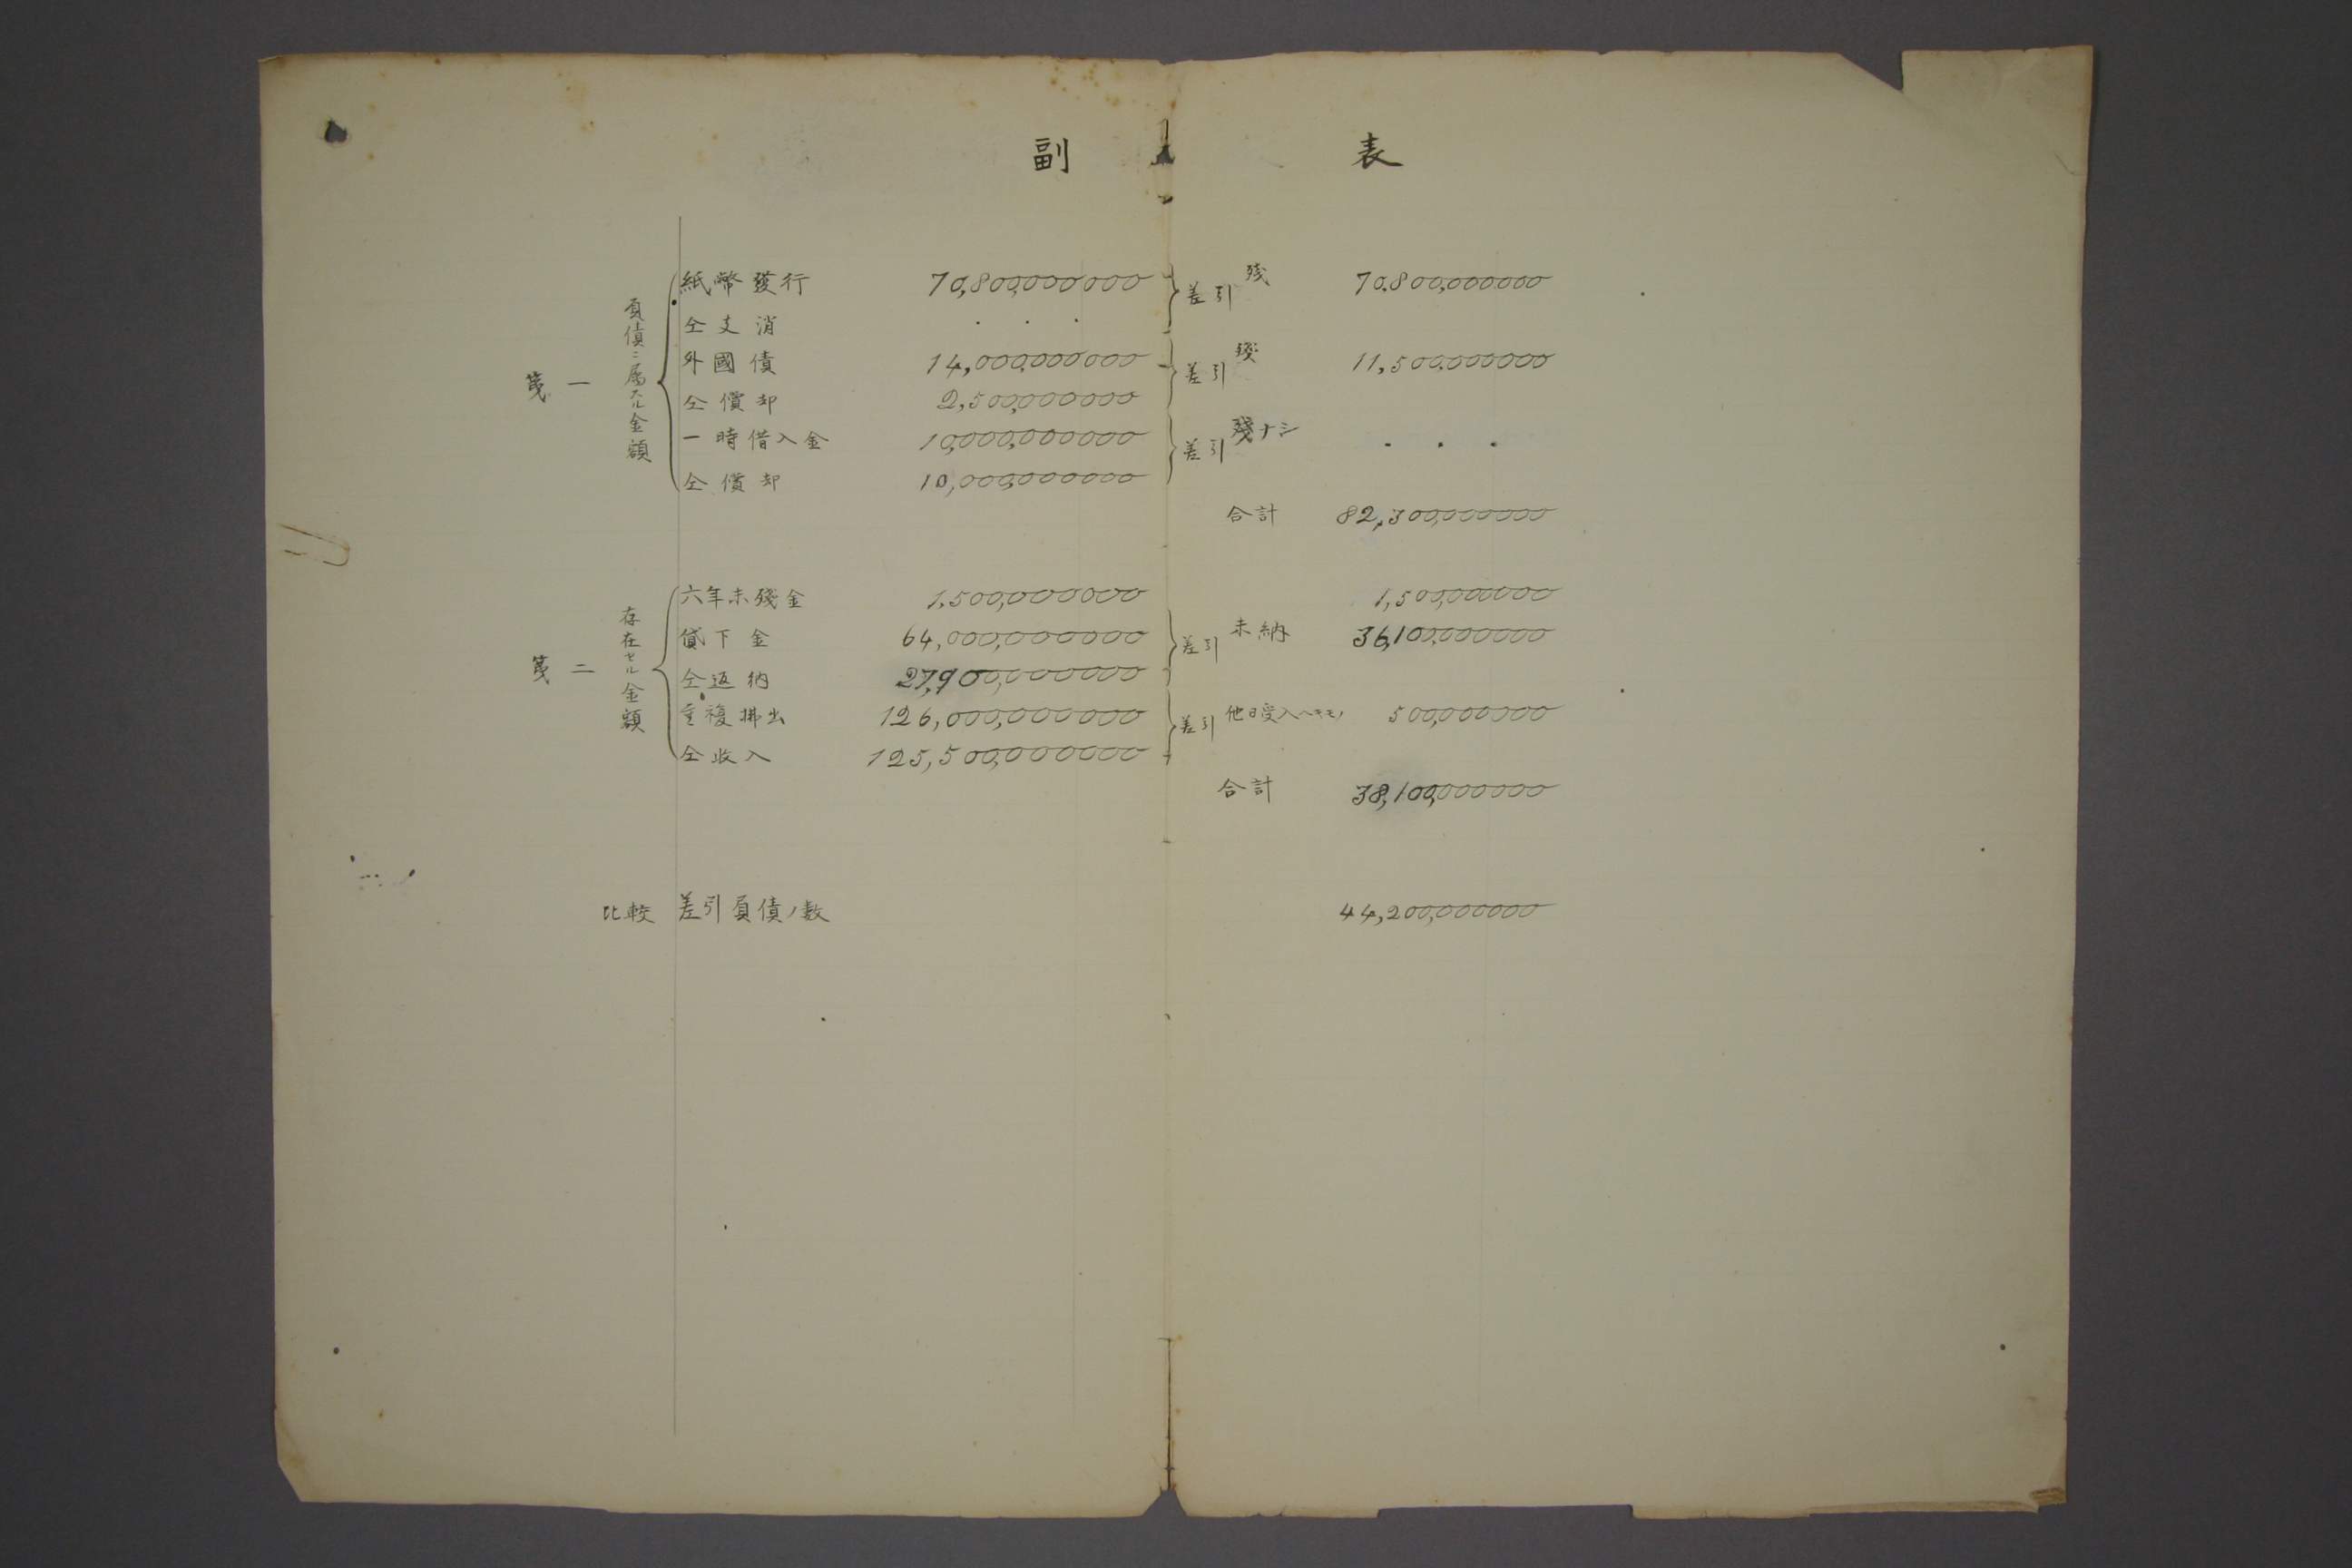 副表
第一
負債ニ属スル金額
紙幣發行 70,800,000000 差引殘 70,800,000000
仝支消 . . .
外國債 14,000,000000 差引殘 11,500,000000
仝償却 2,500,000000
一時借入金 10,000,000000 差引殘ナシ . . .
仝償却 10,000,000000
合計 82,300,000000
第二
存在セル金額
六年末殘金 1,500,000000 1,500,000000
貸下金 64,000,000000 差引未納 36,100,000000
仝返納 27,900,000000
重複拂出 126,000,000000 差引他日受入ヘキモノ 500,000000
仝收入 125,500,000000
合計 38,100,000000
比較 差引負債ノ數 44,200,000000